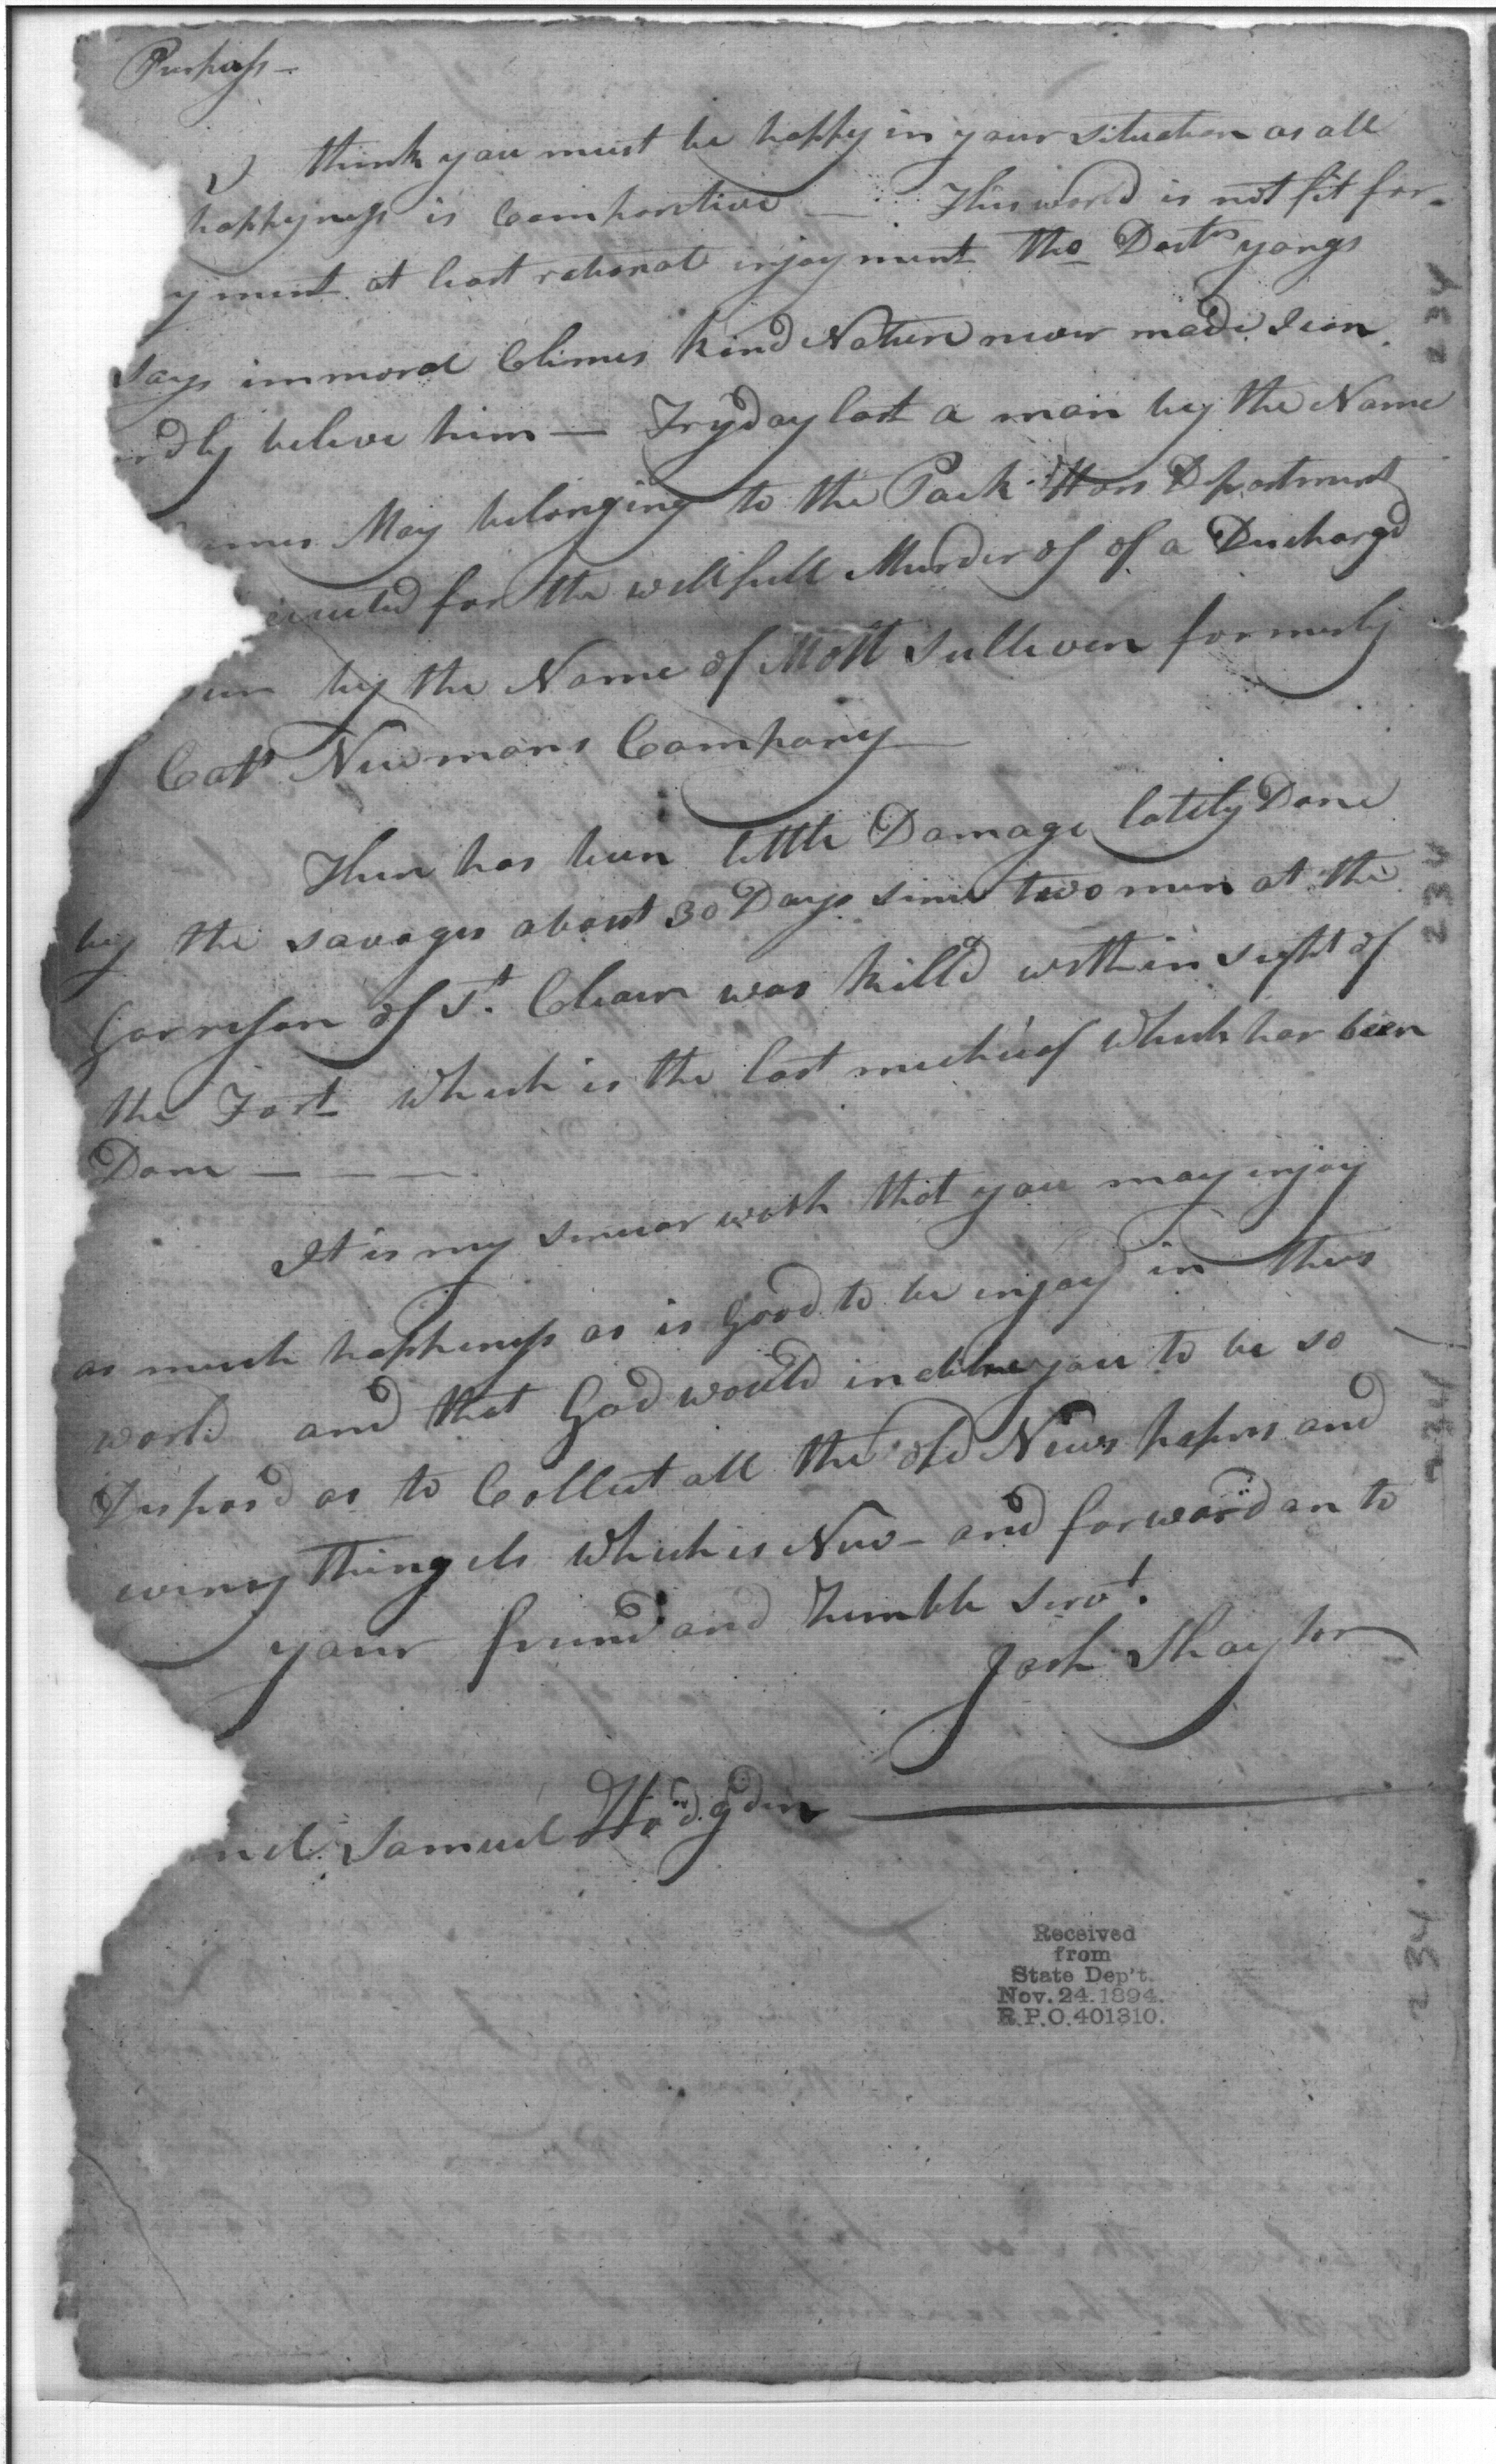 Purhaps —
I think you must be happy in your situation as all
happyness is Comparative — This world is not fit for
yment at least rational injoyment tho Doctr yongs
says immoral Climes kind Nature never made I can
rdly beleve him — Fryday last a man by the Name
ames May belonging to the Pack Hors Department
ecuted for the willfull Murder of of a Discharg'd
by the Name of Mott Sulliven formerly
f Capt Newmans Company
Thear has been little Damage lately Done
by the savages about 30 Days since two men at the
Garreson of St. Cleair was killd within sight of
the Fort which is the last mischief which has been
Done — — —
It is my sincear wish that you may injoy
as much happiness as is Good to be injoyd in this
world and that God would incline you to be so
Disposd as to Collect all the old News papers and
every thing els which is New — and forward an to
your friend and Humble Servt.
Josh Shaylor
nel Samuel Hodgdon
Received
from
State Dep't.
Nov. 24. 1894.
R.P.O. 401310.
234
234
234
234